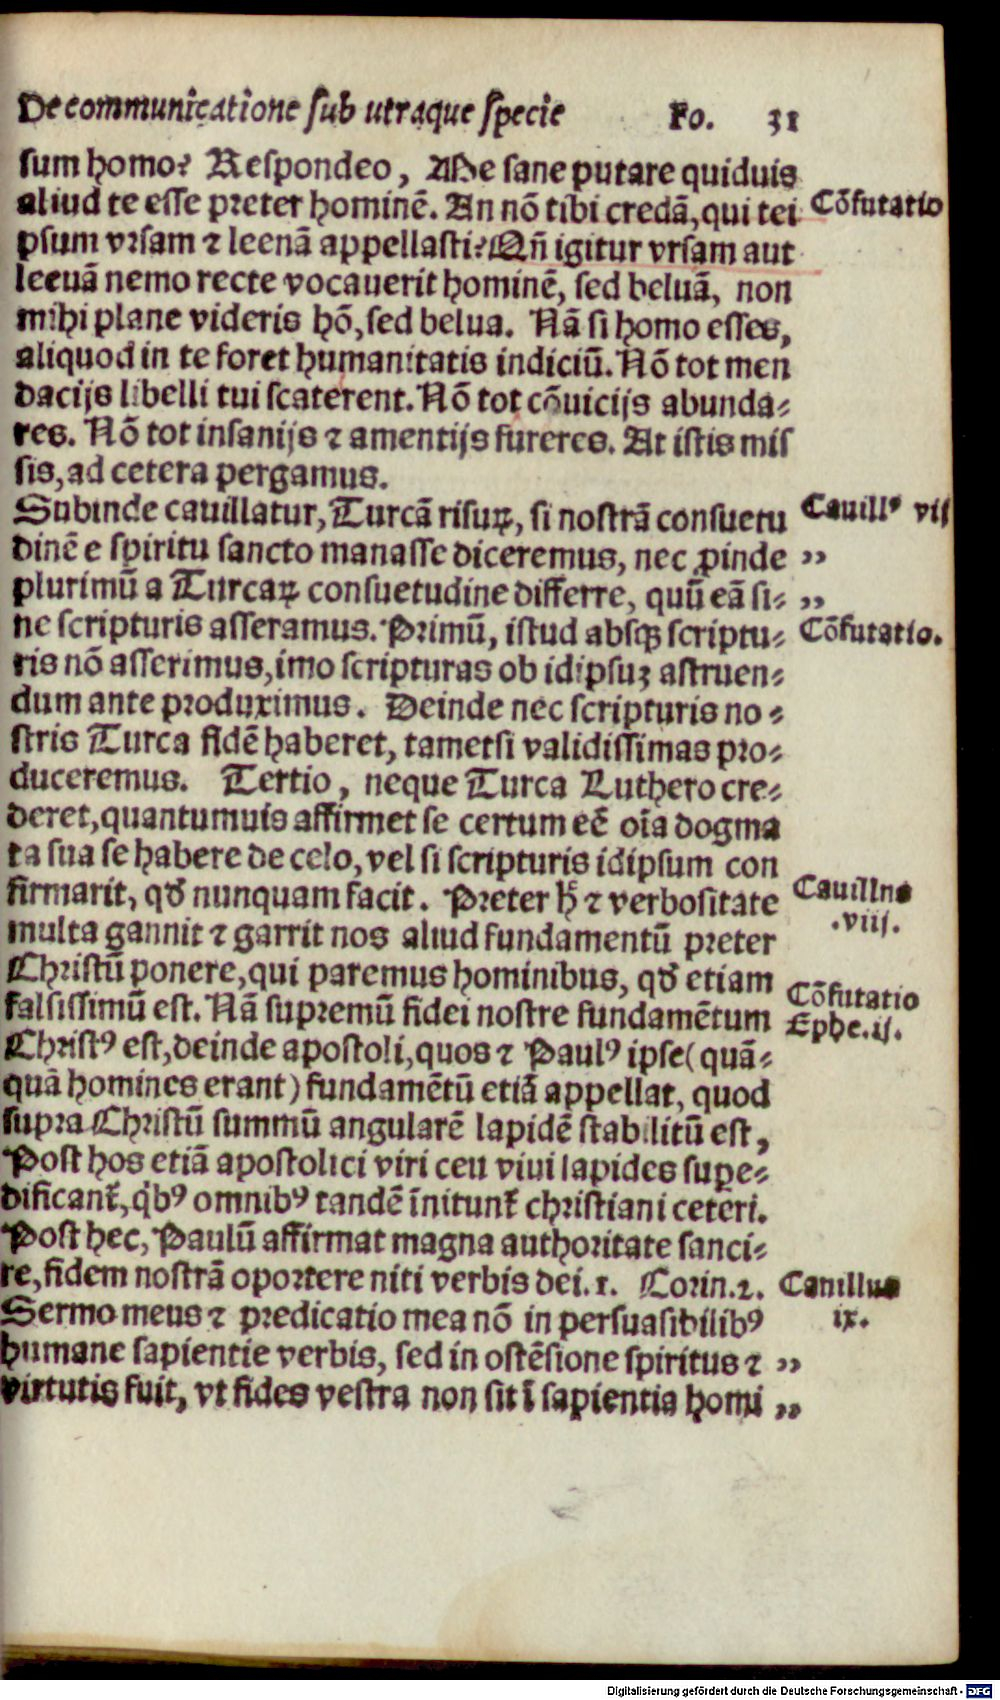 De communicatione sub utraque specie Fo. 31
sum homo? Respondeo, Me sane putare quiduis
aliud te esse preter hominē. An nō tibi credā, qui tei
Cōfutatio
psum vrsam ⁊ leenā appellasti? Qñ igitur vrsam aut
leenā nemo recte vocauerit hominē, sed beluā, non
mihi plane videris hō, sed belua. Nā si homo esses,
aliquod in te foret humanitatis indiciū. Nō tot men
dacijs libelli tui scaterent. Nō tot cōuicijs abunda⸗
res. Nō tot insanijs ⁊ amentijs fureres. At istis mis
sis, ad cetera pergamus.
Subinde cauillatur, Turcā risuꝝ, si nostrā consuetu
Cauillꝰ vij
dinē e spiritu sancto manasse diceremus, nec ꝓinde ,,
plurimū a Turcaꝝ consuetudine differre, quū eā si⸗ ,,
ne scripturis asseramus. Primū, istud absqꝫ scriptu⸗
Cōfutatio.
ris nō asserimus, imo scripturas ob idipsuꝫ astruen⸗
dum ante produximus. Deinde nec scripturis no⸗
stris Turca fidē haberet, tametsi validissimas pro⸗
duceremus. Tertio, neque Turca Luthero cre⸗
deret, quantumuis affirmet se certum eē oīa dogma
ta sua se habere de celo, vel si scripturis idipsum con
firmarit, qđ nunquam facit. Preter ħ ⁊ verbositate
Cauillus
.viij.
multa gannit ⁊ garrit nos aliud fundamentū preter
Christū ponere, qui paremus hominibus, qđ etiam
falsissimū est. Nā supremū fidei nostre fundamētum
Cōfutatio
Ephe.ij.
Christꝰ est, deinde apostoli, quos ⁊ Paulꝰ ipse (quā⸗
quā homines erant) fundamētū etiā appellat, quod
supra Christū summū angularē lapidē stabilitū est,
Post hos etiā apostolici viri ceu viui lapides supe⸗
dificant᷑, qͥbꝰ omnibꝰ tandē īnitunt᷑ christiani ceteri.
Post hec, Paulū affirmat magna authoritate sanci⸗
re, fidem nostrā oportere niti verbis dei. 1. Corin. 2.
Cauillus
ix.
Sermo meus ⁊ predicatio mea nō in persuasibilibꝰ
humane sapientie verbis, sed in ostēsione spiritus ⁊ ,,
virtutis fuit, vt fides vestra non sit ī sapientia homi ,,
Digitalisierung gefördert durch die Deutsche Forschungsgemeinschaft - DFG